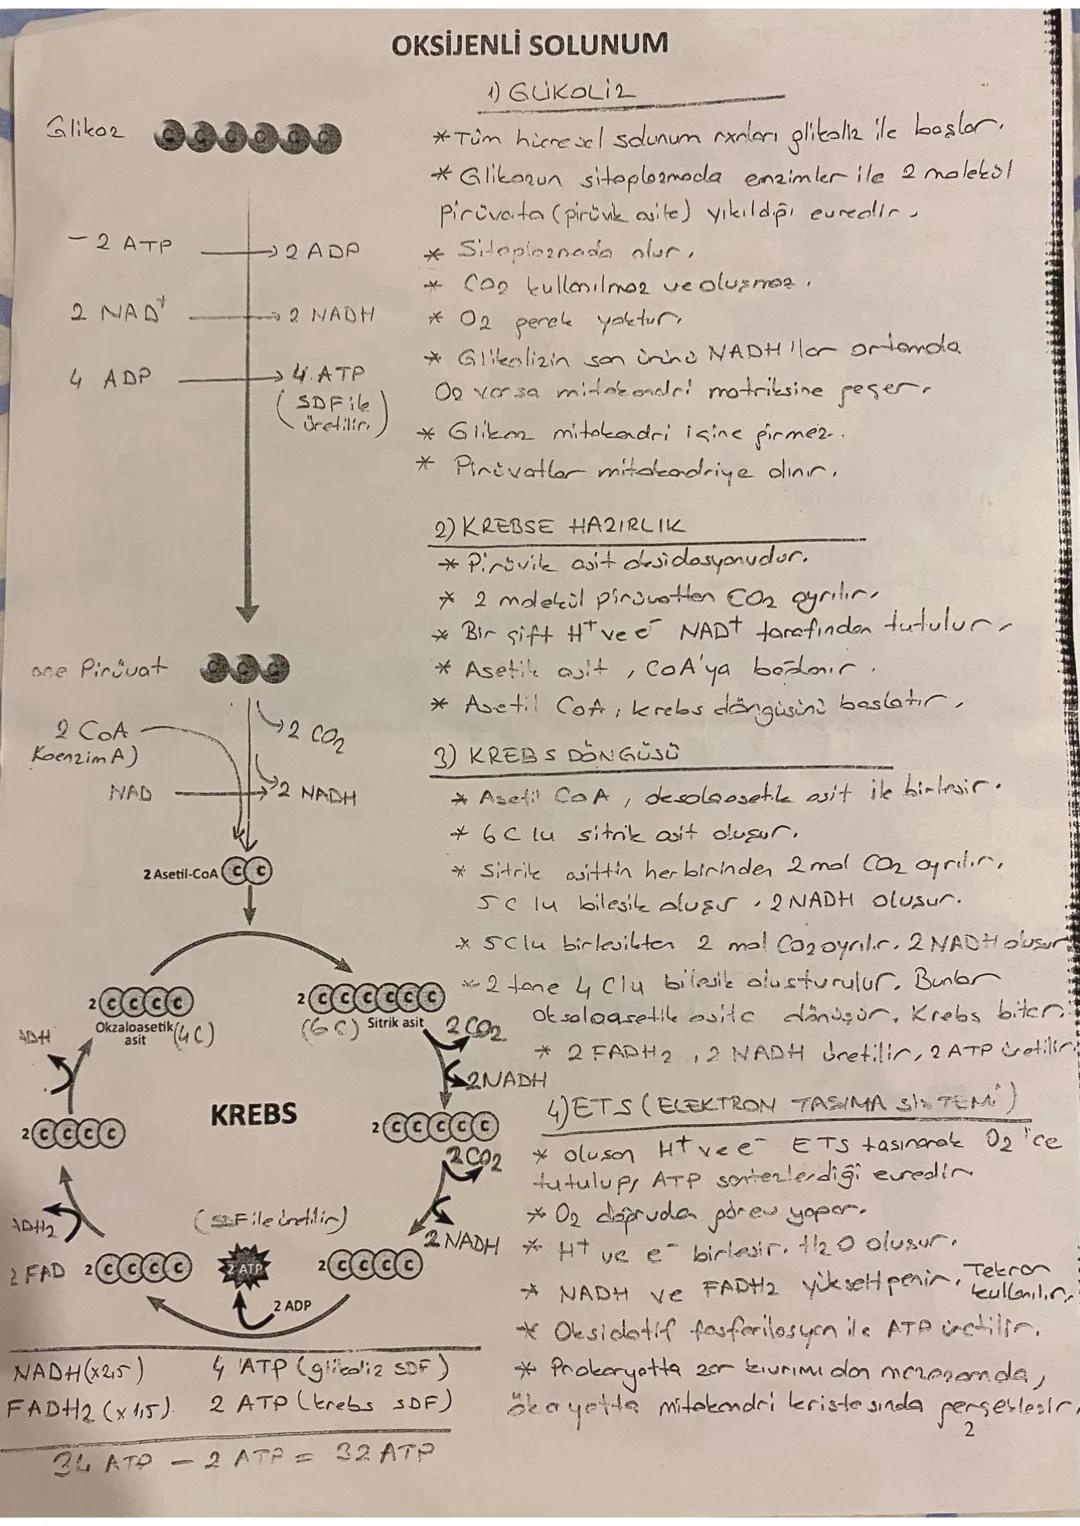 OKSİJENLİ SOLUNUM
1) GLİKOLİZ
Glikoz
* Tüm hücresel solunum rxnları glikoliz ile başlar.
* Glikozun sitoplazmada enzimler ile 2 molekül
pirüvata (pirüvik asite) yıkıldığı evredir.
- 2 ATP → 2 ADP
* Sitoplazmada olur.
* CO2 kullanılmaz ve oluşmaz.
2 NAD+ → 2 NADH
* O2 gerek yoktur.
* Glikolizin son ürünü NADH'lar ortamda
4 ADP → 4 ATP
(SDF ile
üretilir.)
O2 varsa mitokondri matriksine geçer.
* Glikoz mitokondri içine girmez.
* Pirüvatlar mitokondriye alınır.
2) KREBSE HAZIRLIK
* Pirüvik asit oksidasyonudur.
* 2 molekül pirüvattan CO2 ayrılır.
* Bir çift H+ ve e- NAD+ tarafından tutulur.
Pirüvat
* Asetik asit, CoA'ya bağlanır.
* Asetil CoA, krebs döngüsünü başlatır.
2 CoA
Koenzim A)
2 CO2
3) KREBS DÖNGÜSÜ
NAD → 2 NADH
* Asetil CoA, oksaloasetik asit ile birleşir.
* 6C lu sitrik asit oluşur.
2 Asetil-CoA C C
* Sitrik asittin her birinden 2 mol CO2 ayrılır,
5C lu bileşik oluşur. 2 NADH oluşur.
* 5C lu birleşikten 2 mol CO2 ayrılır. 2 NADH oluşur
* 2 tane 4 C lu bileşik oluşturulur. Bunlar
oksaloasetik asite dönüşür. Krebs biter.
* 2 FADH2, 2 NADH üretilir, 2 ATP üretilir.
2 C C C C
Okzaloasetik
asit (4C)
2 C C C C C C
(6C) Sitrik asit
2 CO2
2 NADH
ADH
KREBS
4) ETS (ELEKTRON TAŞIMA SİSTEMİ)
2 C C C C
2 C C C C C
2 CO2
* oluşan H+ ve e- ETS taşınarak O2'ce
tutulup, ATP sentezlendiği evredir
* O2 doğrudan görev yapar.
(SDF ile üretilir)
ADH2
2 NADH
* H+ ve e- birleşir. H2O oluşur.
2 FAD
2 C C C C
2 ATP
2 C C C C
2 ADP
* NADH ve FADH2 yükseltgenir. Tekrar
kullanılır.
* Oksidatif fosforilasyon ile ATP üretilir.
NADH (x2,5) 4 ATP (glikoliz SDF)
* Prokaryotta zar kıvrımı olan mezozomda,
FADH2 (x1,5) 2 ATP (krebs SDF)
ökaryotta mitokondri kristasında gerçekleşir.
34 ATP - 2 ATP = 32 ATP
2